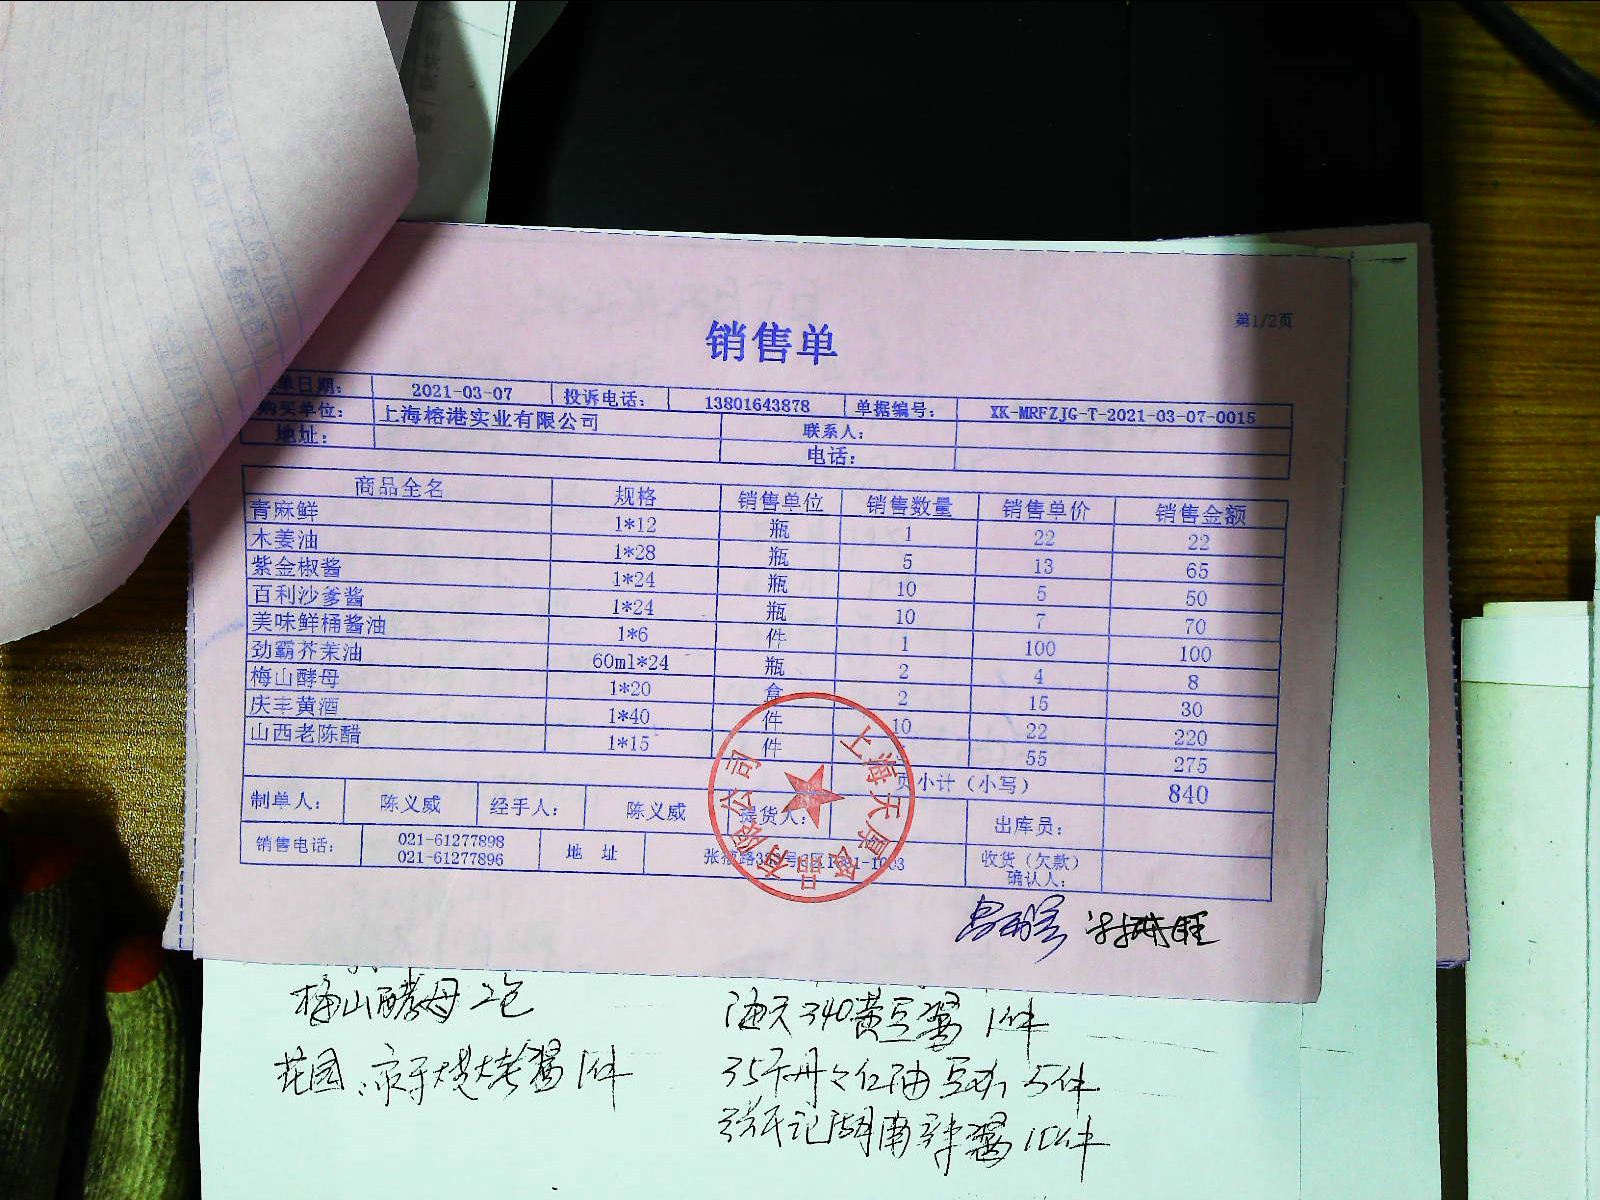 第1/2页
销售单
单日期： 2021-03-07 投诉电话： 13801643878 单据编号： XK-MRFZJG-T-2021-03-07-0015
购买单位： 上海榕港实业有限公司 联系人：
地址： 电话：
商品全名 规格 销售单位 销售数量 销售单价 销售金额
青麻鲜 1*12 瓶 1 22 22
木姜油 1*28 瓶 5 13 65
紫金椒酱 1*24 瓶 10 5 50
百利沙爹酱 1*24 瓶 10 7 70
美味鲜桶酱油 1*6 件 1 100 100
劲霸芥茉油 60ml*24 瓶 2 4 8
梅山酵母 1*20 盒 2 15 30
庆丰黄酒 1*40 件 10 22 220
山西老陈醋 1*15 件 55 275
页小计（小写） 840
制单人： 陈义威 经手人： 陈义威 提货人： 出库员：
销售电话： 021-61277898 地 址 收货（欠款）
021-61277896 确认人：
梅山酵母2包 海天340黄豆酱 1件
花园 京字烧烤酱1件 35千丹丹红油豆瓣 5件
张氏记湖南辣酱10件